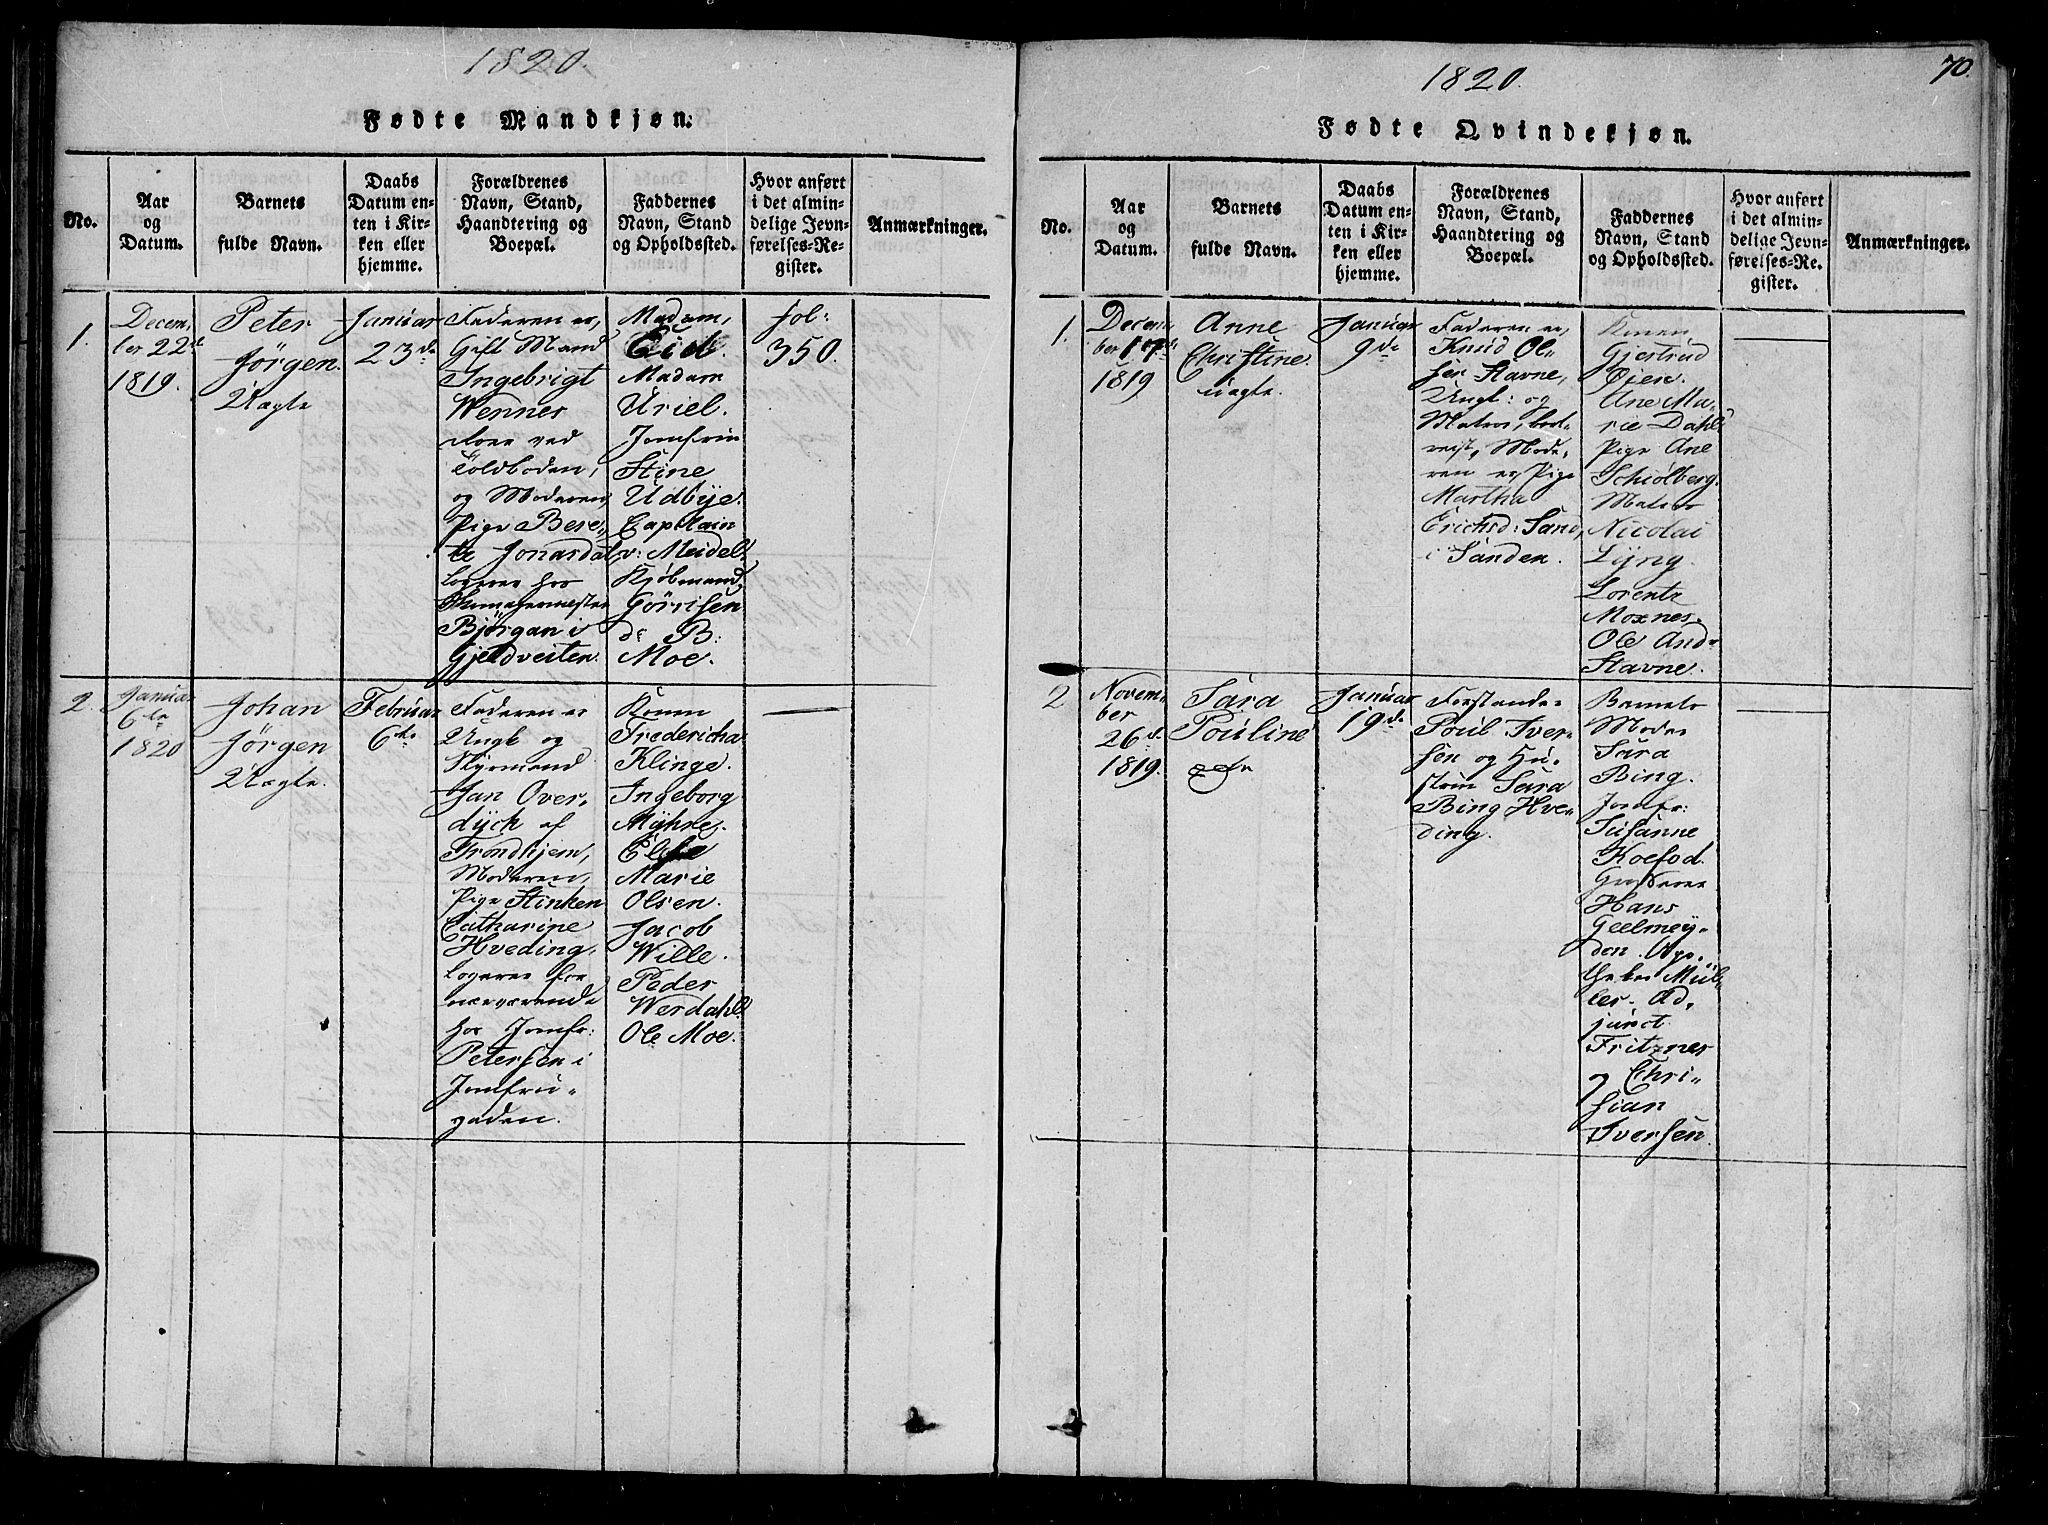 1820.
Fødte Mandkjøn.
No.
Aar
og
Datum.
Barnets
fulde Navn.
Daabs
Datum en-
ten i Kir-
ken eller
hjemme.
Forældrenes
Navn, Stand,
Haandtering og
Boepæl.
Faddernes
Navn, Stand
og Opholdssted.
Hvor anført
i det almin-
delige Jevn-
førelses-Re-
gister.
Anmærkninger.
1.
Decem-
ber 22d
1819.
Peter
Jörgen.
Uægte
Januar
23de
Faderen er,
Gift Mand
Ingebrigt
Wenner
boer ved
Toldboden,
og Moderen,
Pige Bere-
te Jonasdal,
logerer hos
Skomagermester
Bjørgan i
Gjeldveiten.
Madam,
Eid.
Madam
Uriel.
Jomfru
Stine
Udbye.
Captain
v: Meidel.
Kjøbmand
Görrisen
B:
Moe.
fol:
350.
2.
Januar
6te
1820
Johan
Jörgen
Uægte
Februar
6te
Faderen er
Ungk og
Styrmand
Jan Over-
dyck af
Trondhjem,
Moderen,
Pige Stinken
Catharine
Hveding,
logerer for
nærværende
hos Jomfr:
Petersen i
Jomfru-
gaden.
Konen
Fredericha
Klinge.
Ingeborg
Myhre.
Else
Marie
Olsen.
Jacob
Wille.
Peder
Werdahl.
Ole Moe.
70.
1820.
Fødte Qvindekjøn.
No.
Aar
og
Datum.
Barnets
fulde Navn.
Daabs
Datum en-
ten i Kir-
ken eller
hjemme.
Forældrenes
Navn, Stand,
Haandtering og
Boepæl.
Faddernes
Navn, Stand
og Opholdssted.
Hvor anført
i det almin-
delige Jevn-
førelses-Re-
gister.
Anmærkninger.
1.
Decem-
ber 17de
1819
Anne
Christine.
uægte.
Januar
9de
Faderen er,
Knud Ol-
sen Stavne,
Ungk: og
Matros, bort-
reist, Mode-
ren er, Pige
Martha
Erichsd: Sand,
i Sanden.
Konen
Gjertrud
Øien.
Ane Ma-
rie Dahl
Pige Ane
Schiølberg.
Matros
Nicolai
Lyng.
Lorentz
Moxnes.
Ole And
Stavne.
2
Novem-
ber
26d.
1819.
Sara
Pouline
Januar
19de
Forstander
Poul Iver-
sen og Hu-
strue Sara
Bing Hve-
ding.
Barnets
Moder
Sara
Bing.
Jomfr:
Susanne
Koefod.
Hans
Geelmey-
den. Apo-
theker Mül-
ler. Ad-
junct
Fritzner
og Chri-
stian
Iversen.